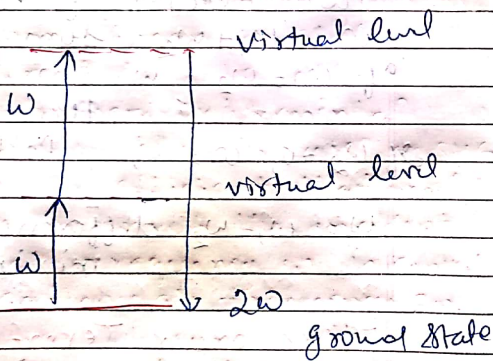 virtual level
ω
virtual level
ω
2ω
ground state